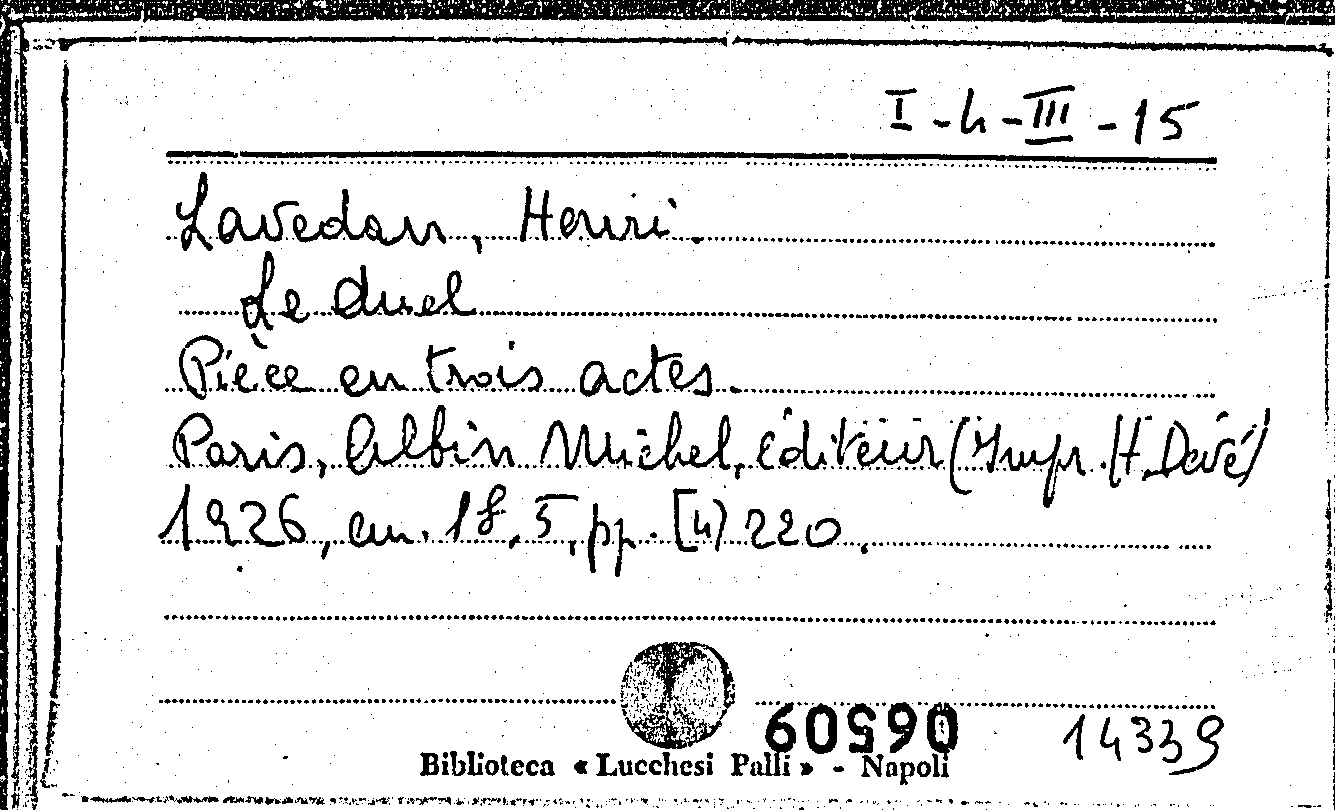 I-4-III-15
Lavedan, Henri.
Le duel
Pièce en trois actes.
Paris, Albin Michel, éditeur (Impr. H. Davé)
1926, cm. 18,5, pp. [4) 220.
60590 14339
Biblioteca « Lucchesi Palli » - Napoli